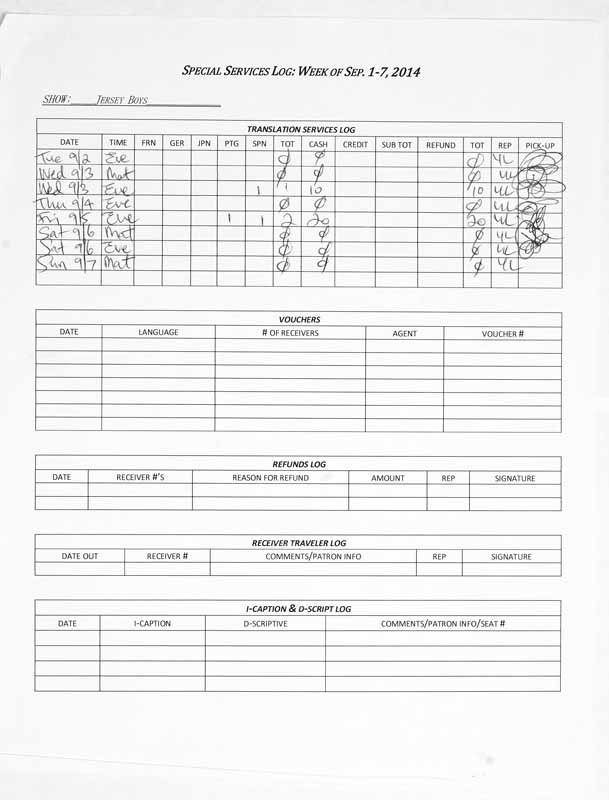 SPECIAL SERVICES LOG: WEEK OF SEP. 1-7, 2014
SHOW: JERSEY BOYS
TRANSLATION SERVICES LOG
DATE TIME FRN GER JPN PTG SPN TOT CASH CREDIT SUB TOT REFUND TOT REP PICK-UP
Tue 9/2 Eve ∅ ∅ ∅ YL
Wed 9/3 Mat ∅ ∅ ∅ YL
Wed 9/3 Eve 1 1 10 10 YL
Thu 9/4 Eve ∅ ∅ ∅ YL
Fri 9/5 Eve 1 1 2 20 20 YL
Sat 9/6 Mat ∅ ∅ ∅ YL
Sat 9/6 Eve ∅ ∅ ∅ YL
Sun 9/7 Mat ∅ ∅ ∅ YL
VOUCHERS
DATE LANGUAGE # OF RECEIVERS AGENT VOUCHER #
REFUNDS LOG
DATE RECEIVER #'S REASON FOR REFUND AMOUNT REP SIGNATURE
RECEIVER TRAVELER LOG
DATE OUT RECEIVER # COMMENTS/PATRON INFO REP SIGNATURE
I-CAPTION & D-SCRIPT LOG
DATE I-CAPTION D-SCRIPTIVE COMMENTS/PATRON INFO/SEAT #